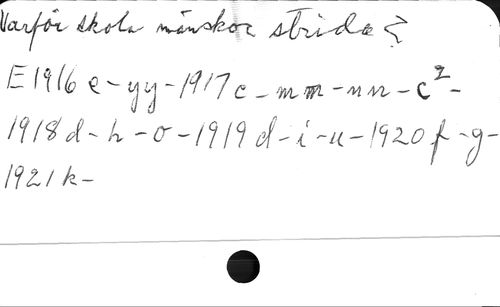 Varför skola mänskor strida?
E 1916 e - yy - 1917 c - mm - nn - c² -
1918 d - h - o - 1919 d - i - u - 1920 f - g -
1921 k -